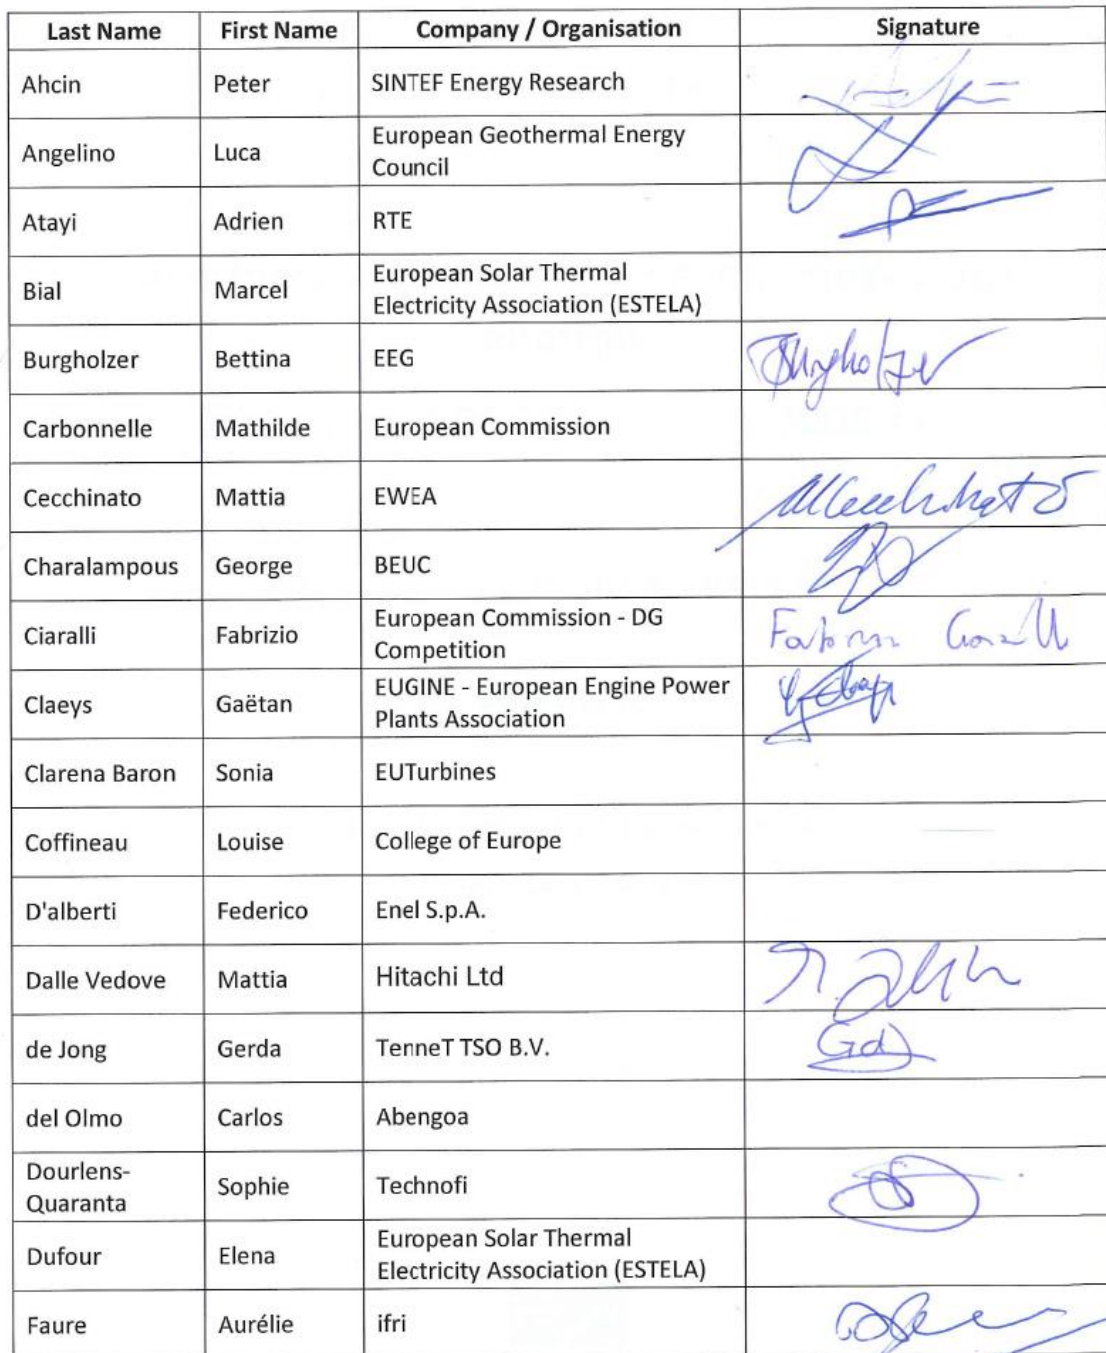 Last Name First Name Company / Organisation Signature
Ahcin Peter SINTEF Energy Research
Angelino Luca European Geothermal Energy
Council
Atayi Adrien RTE
Bial Marcel European Solar Thermal
Electricity Association (ESTELA)
Burgholzer Bettina EEG Burgholzer
Carbonnelle Mathilde European Commission
Cecchinato Mattia EWEA MCecchinato
Charalampous George BEUC
Ciaralli Fabrizio European Commission - DG
Competition
Claeys Gaëtan EUGINE - European Engine Power
Plants Association
Clarena Baron Sonia EUTurbines
Coffineau Louise College of Europe
D'alberti Federico Enel S.p.A.
Dalle Vedove Mattia Hitachi Ltd
de Jong Gerda TenneT TSO B.V. GdJ
del Olmo Carlos Abengoa
Dourlens-
Quaranta Sophie Technofi
Dufour Elena European Solar Thermal
Electricity Association (ESTELA)
Faure Aurélie ifri